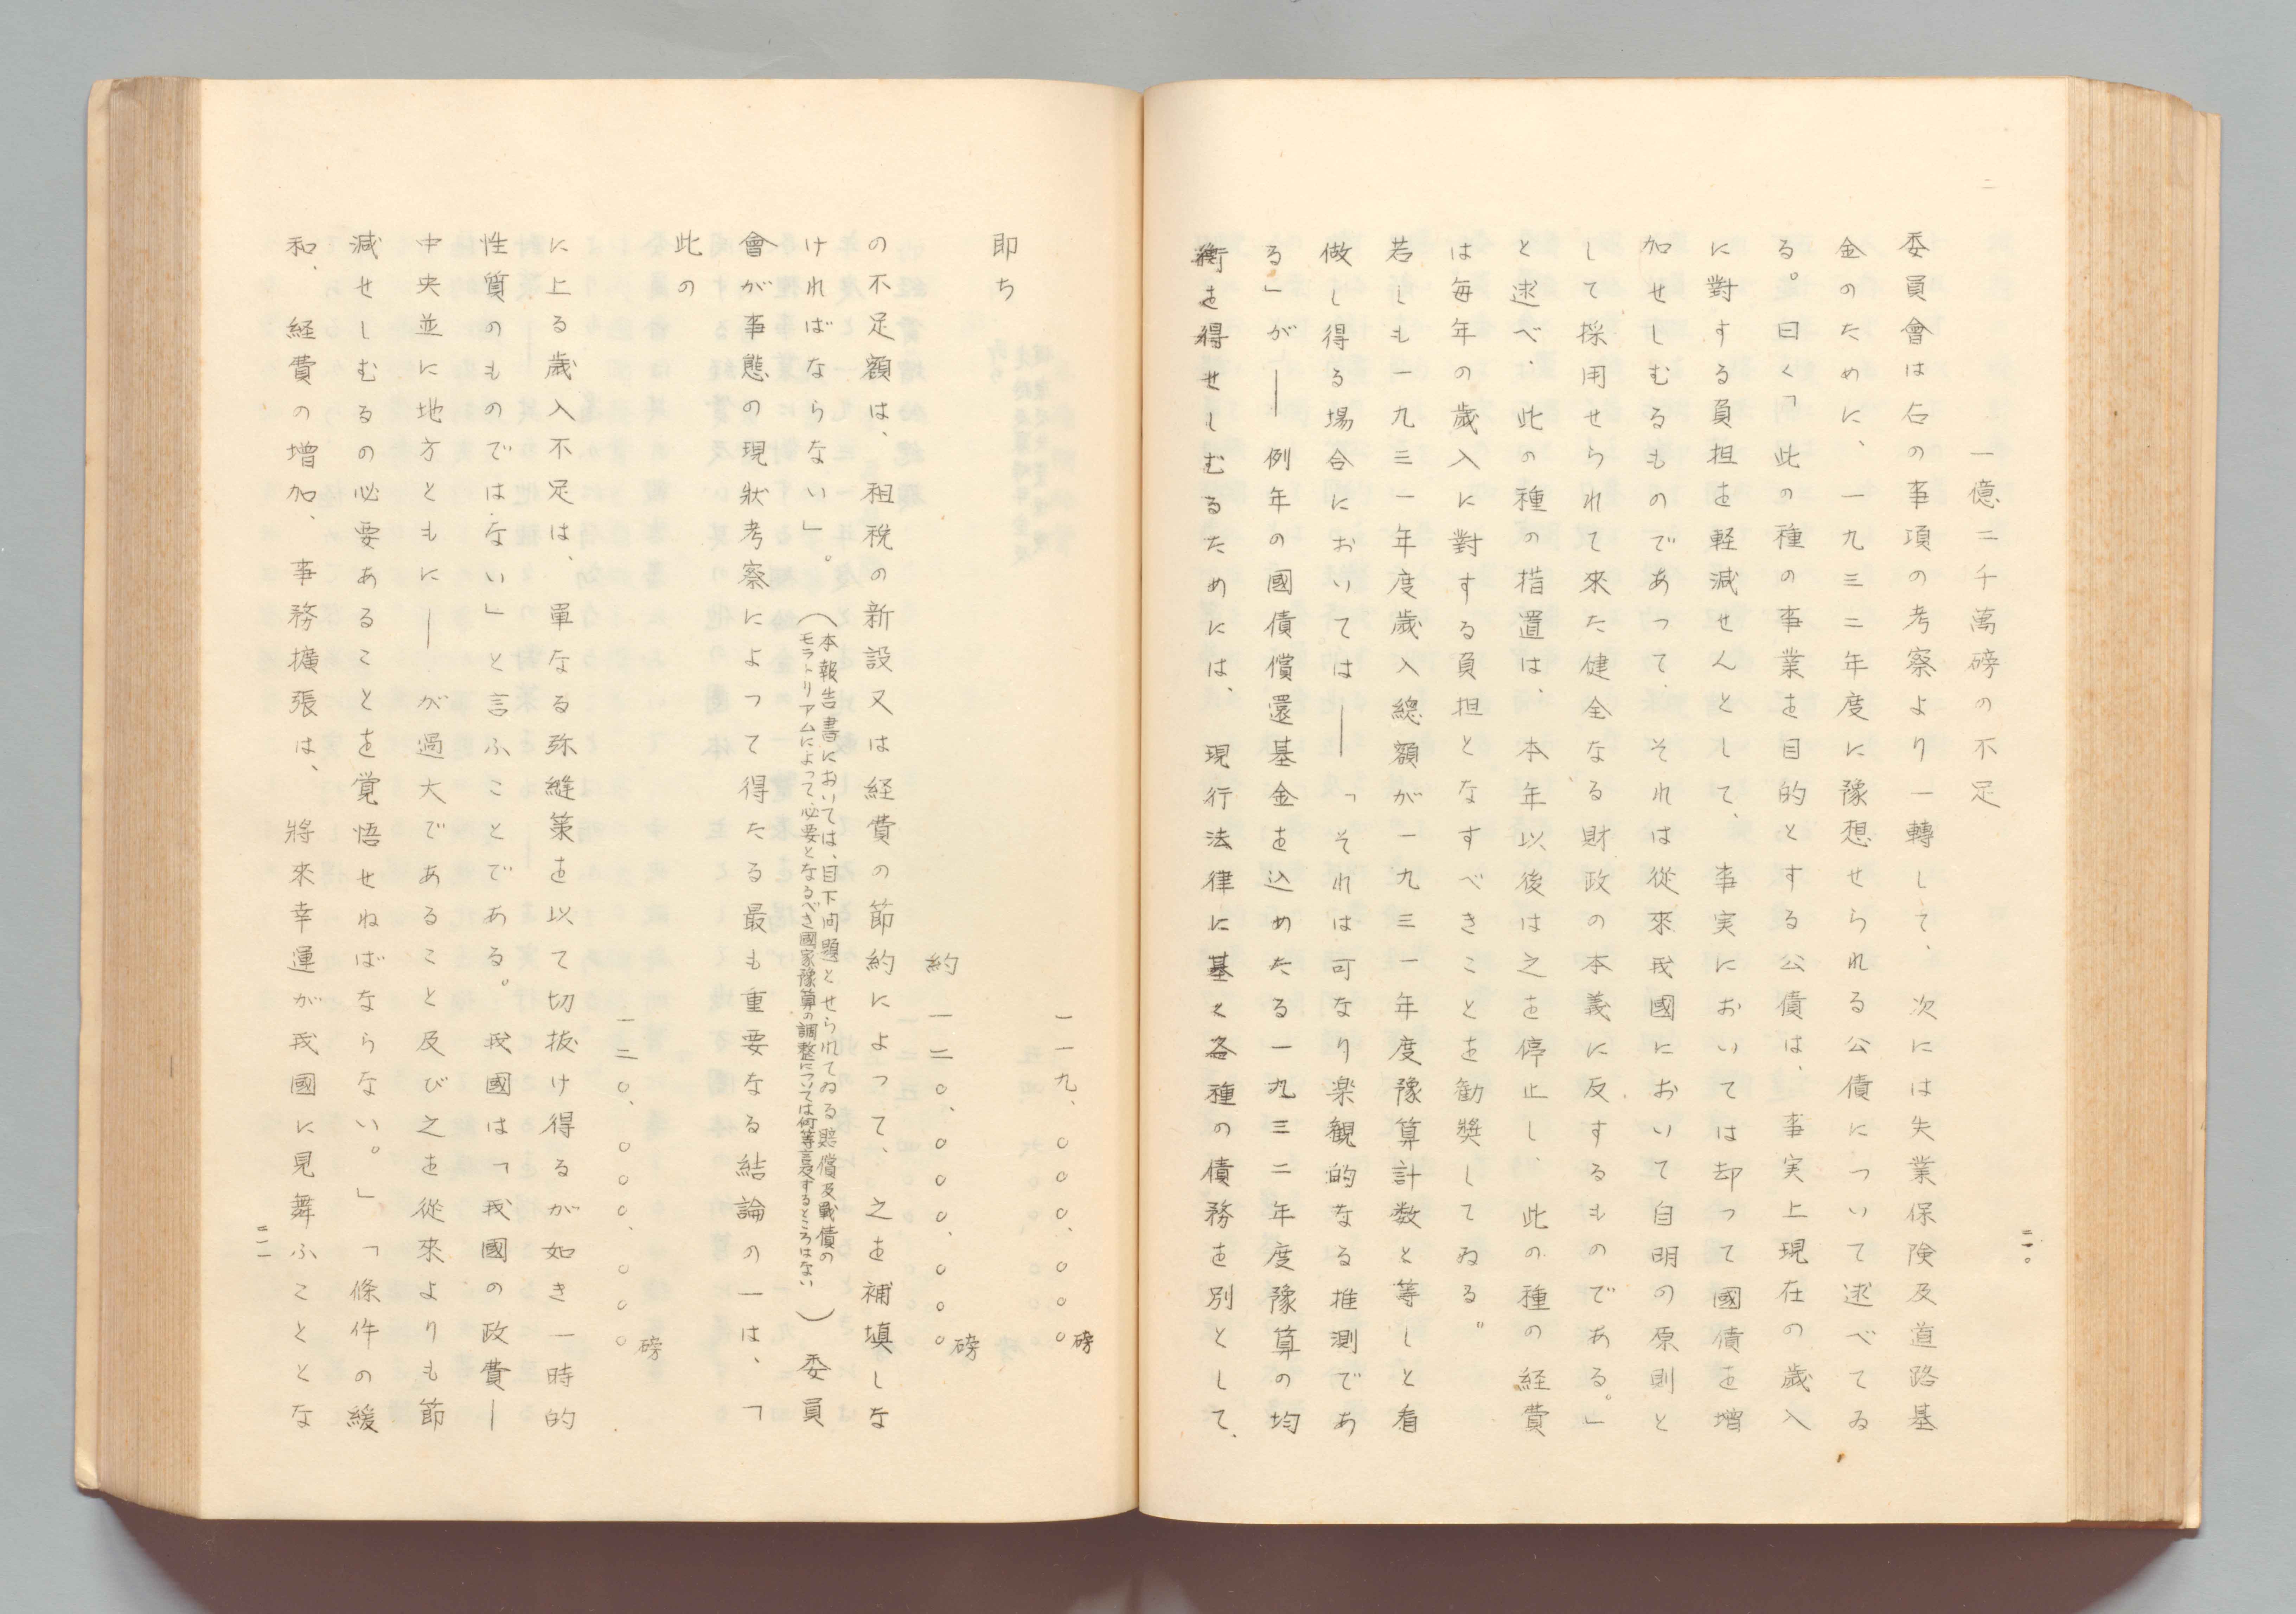 二〇
一億二千萬磅の不足
委員會は右の事項の考察より一轉して、次には失業保険及道路基
金のために、一九三二年度に豫想せられる公債について述べてゐ
る。曰く「此の種の事業を目的とする公債は、事実上現在の歳入
に對する負担を軽減せんとして、事実においては却って國債を増
加せしむるものであって、それは從來我國において自明の原則と
して採用せられて來た健全なる財政の本義に反するものである。」
と述べ、此の種の措置は、本年以後は之を停止し、此の種の経費
は毎年の歳入に對する負担となすべきことを勧奬してゐる。
若しも一九三一年度歳入總額が一九三一年度豫算計数と等しと看
做し得る場合においては――「それは可なり楽観的なる推測であ
る」が――例年の國債償還基金を込めたる一九三二年度豫算の均
衡を得せしむるためには、現行法律に基く各種の債務を別として、
一一九、〇〇〇、〇〇〇磅
即ち
約一二〇、〇〇〇、〇〇〇磅
の不足額は、租税の新設又は経費の節約によって、之を補填しな
ければならない」。(本報告書においては、目下问題とせられてゐる賠償及戰債の
モラトリアムによって必要となるべき國家豫算の調整については何等言及するところはない)委員
會が事態の現狀考察によって得たる最も重要なる結論の一は、「
此の
一二〇、〇〇〇、〇〇〇磅
に上る歳入不足は、單なる弥縫策を以て切抜け得るが如き一時的
性質のものではない」と言ふことである。我國は「我國の政費―
中央並に地方ともに―が過大であること及び之を從來よりも節
減せしむるの必要あることを覚悟せねばならない。」「條件の緩
和、経費の増加、事務擴張は、將來幸運が我國に見舞ふこととな
二一